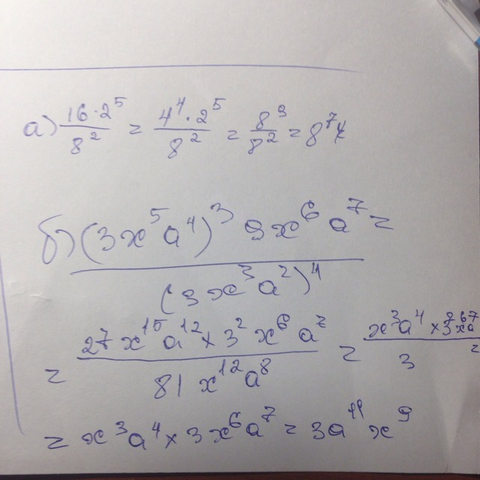 а) (16·2⁵)/8² = (4⁴·2⁵)/8² = 8⁹/8² = 8⁷
б) ((3x⁵a⁴)³ 9x⁶a⁷)/(3x³a²)⁴ =
= (27x¹⁵a¹²×3²x⁶a⁷)/(81x¹²a⁸) = (x³a⁴×3²x⁶a⁷)/3 =
= x³a⁴×3x⁶a⁷=3a¹¹x⁹